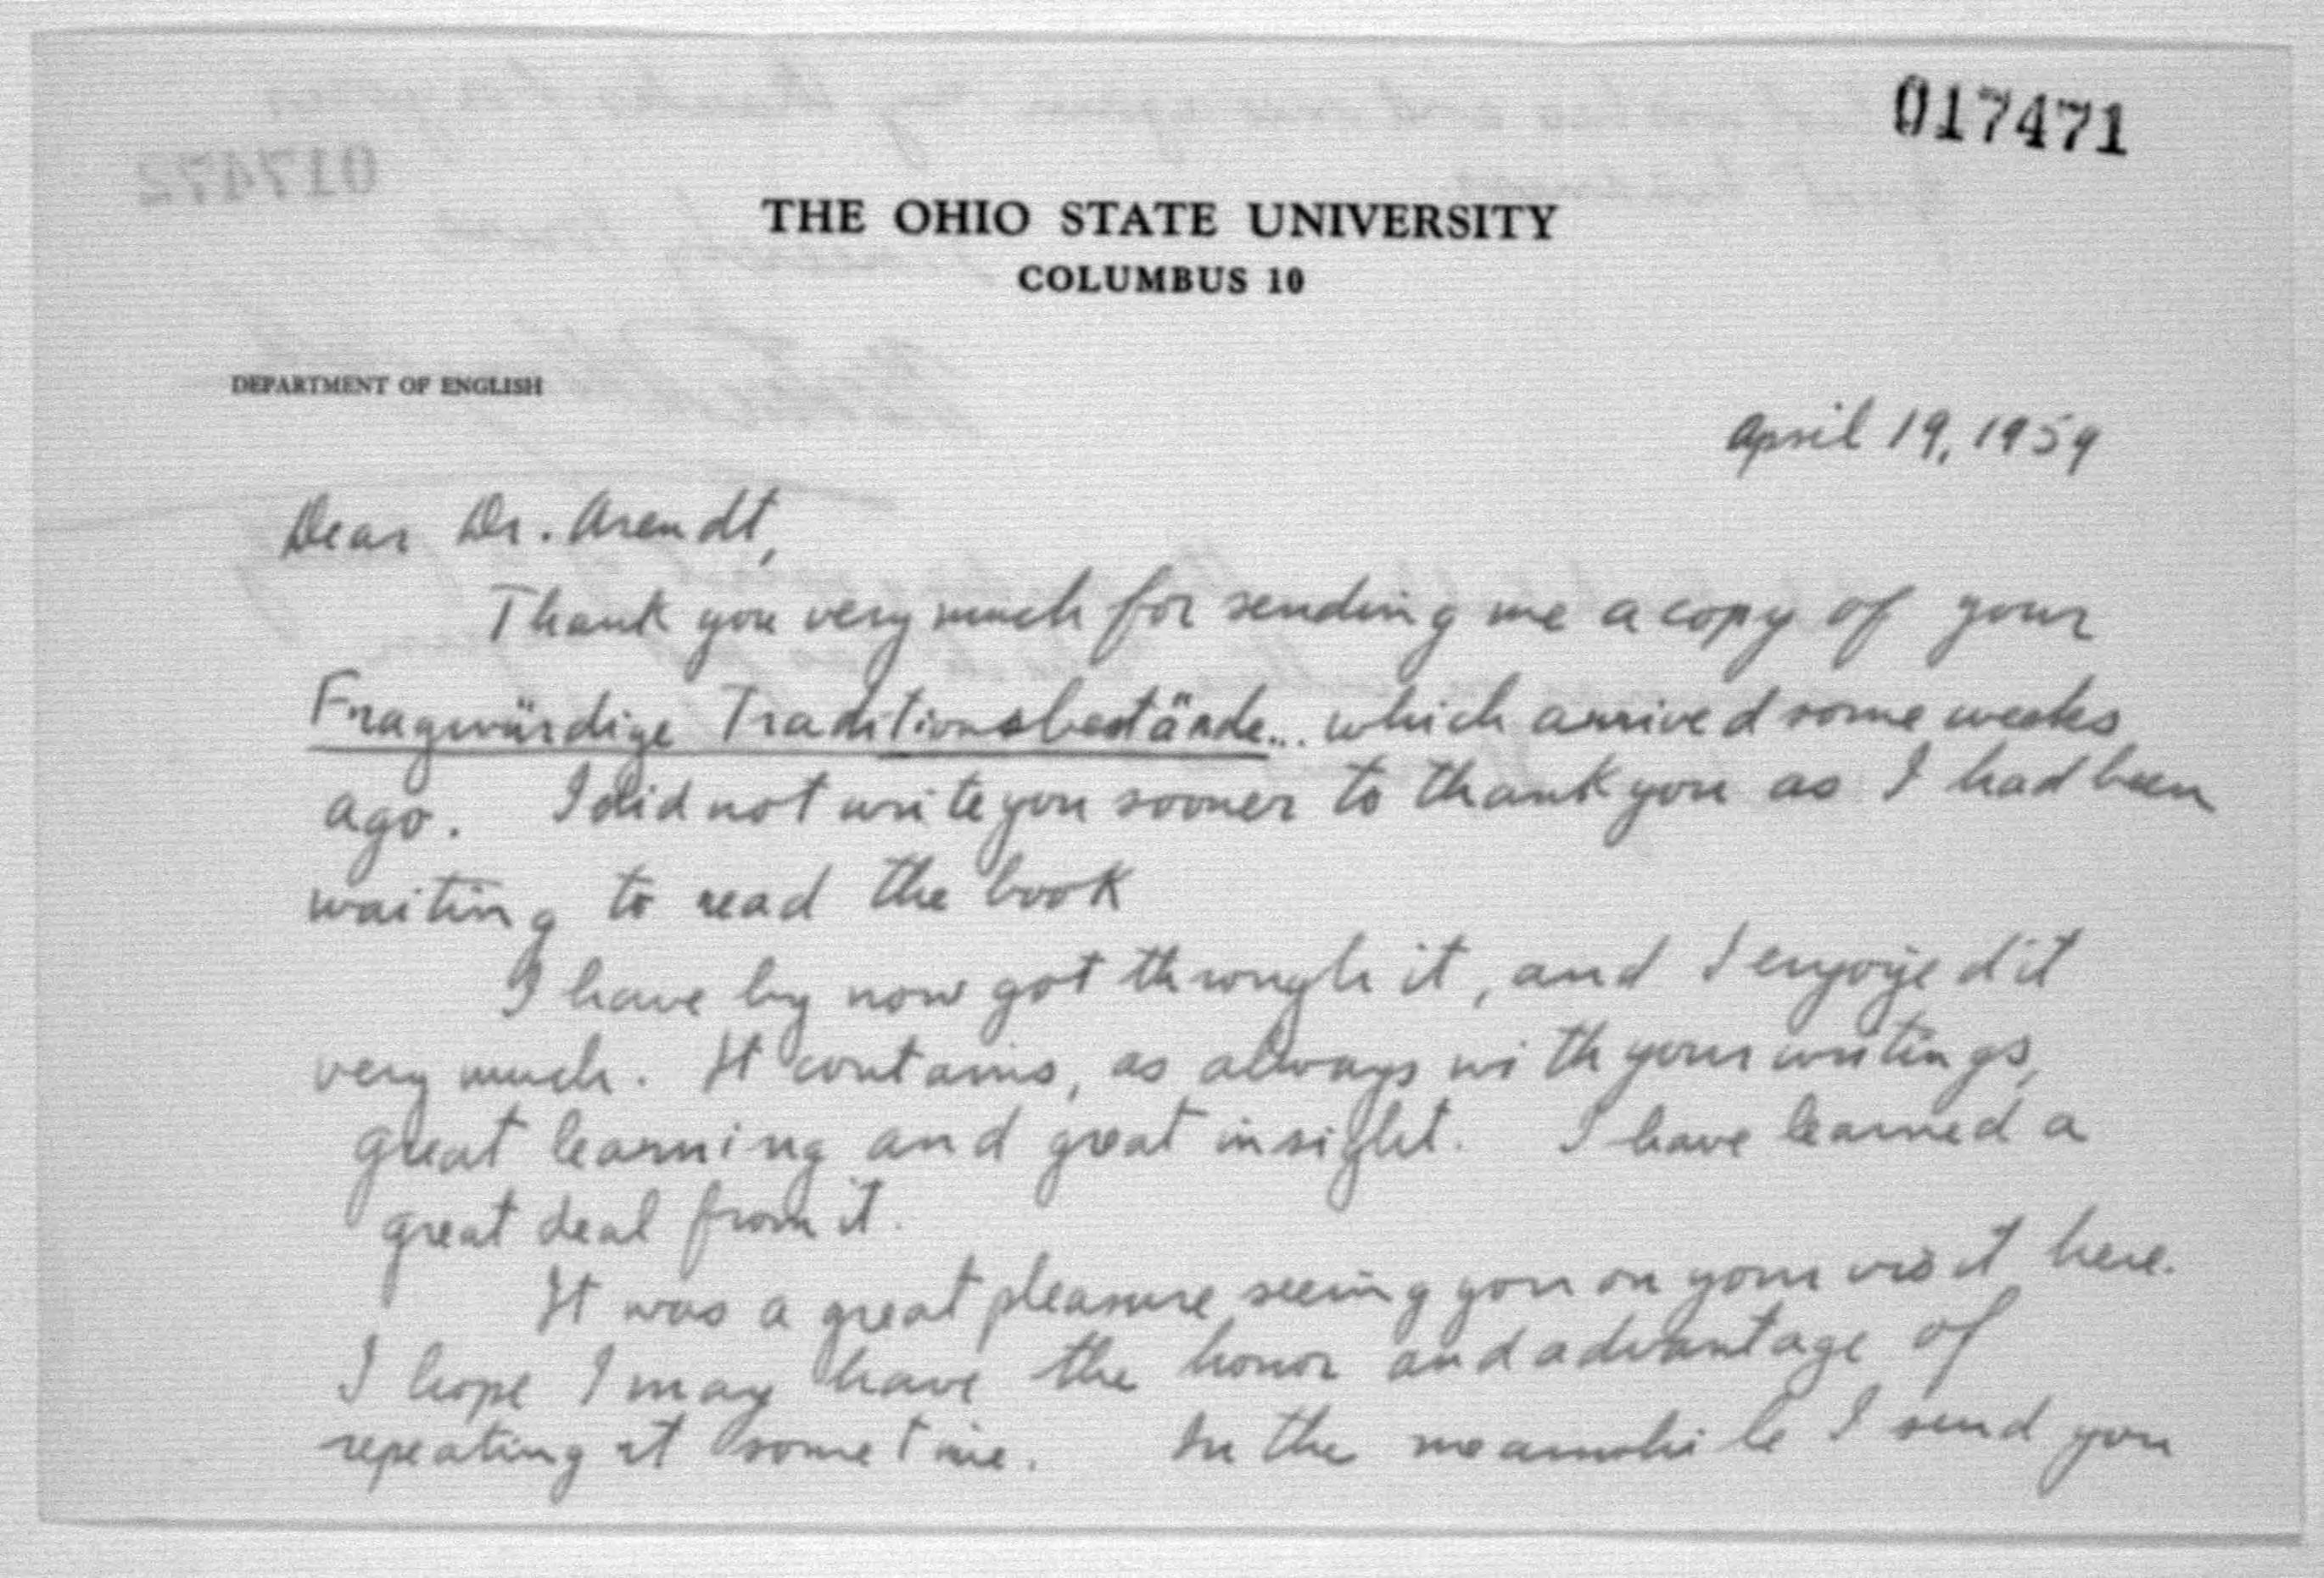 017471
THE OHIO STATE UNIVERSITY
COLUMBUS 10
DEPARTMENT OF ENGLISH
April 19, 1959
Dear Dr. Arendt,
Thank you very much for sending me a copy of your
Fragwürdige Traditionsbestände... which arrived some weeks
ago. I did not write you sooner to thank you as I had been
waiting to read the book
I have by now got through it, and I enjoyed it
very much. It contains, as always with your writings,
great learning and great insight. I have learned a
great deal from it.
It was a great pleasure seeing you on your visit here.
I hope I may have the honor and advantage of
repeating it sometime. In the meanwhile I send you
017472